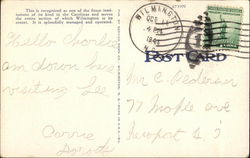 This is recognized as one of the finest institutions of its kind in the Carolinas and serves the entire section of which Wilmington is its center. It is splendidly managed and operated.
WILMINGTON
DEC
4 PM
1941
N.C.
POST CARD
Hello Charlie
am down here
visiting Lee
Carrie
Mr C. Pedersen
77 Maple ave
Newport R. I